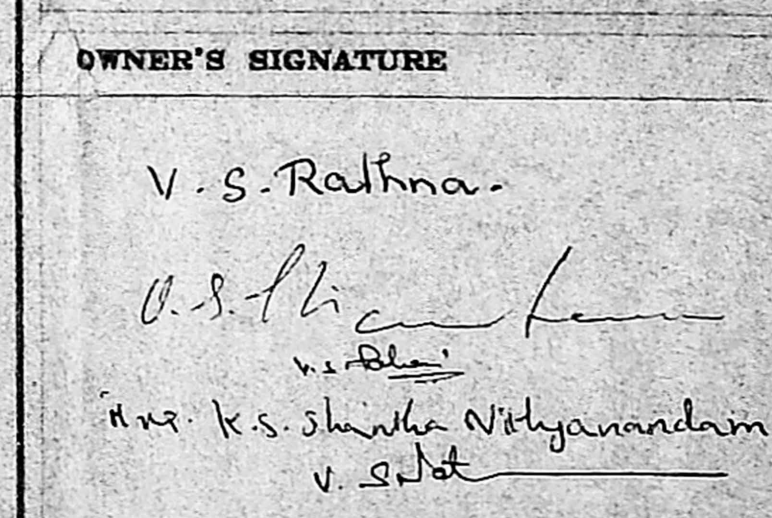 OWNER'S SIGNATURE
V. S. Rathna.
V. S.
V. S.
Mrs. K. S. Shantha Nithyanandam
V. S.